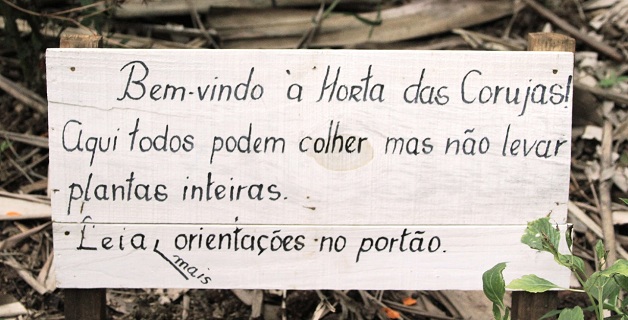 Bem-vindo à Horta das Corujas!
Aqui todos podem colher mas não levar
plantas inteiras.
Leia mais orientações no portão.